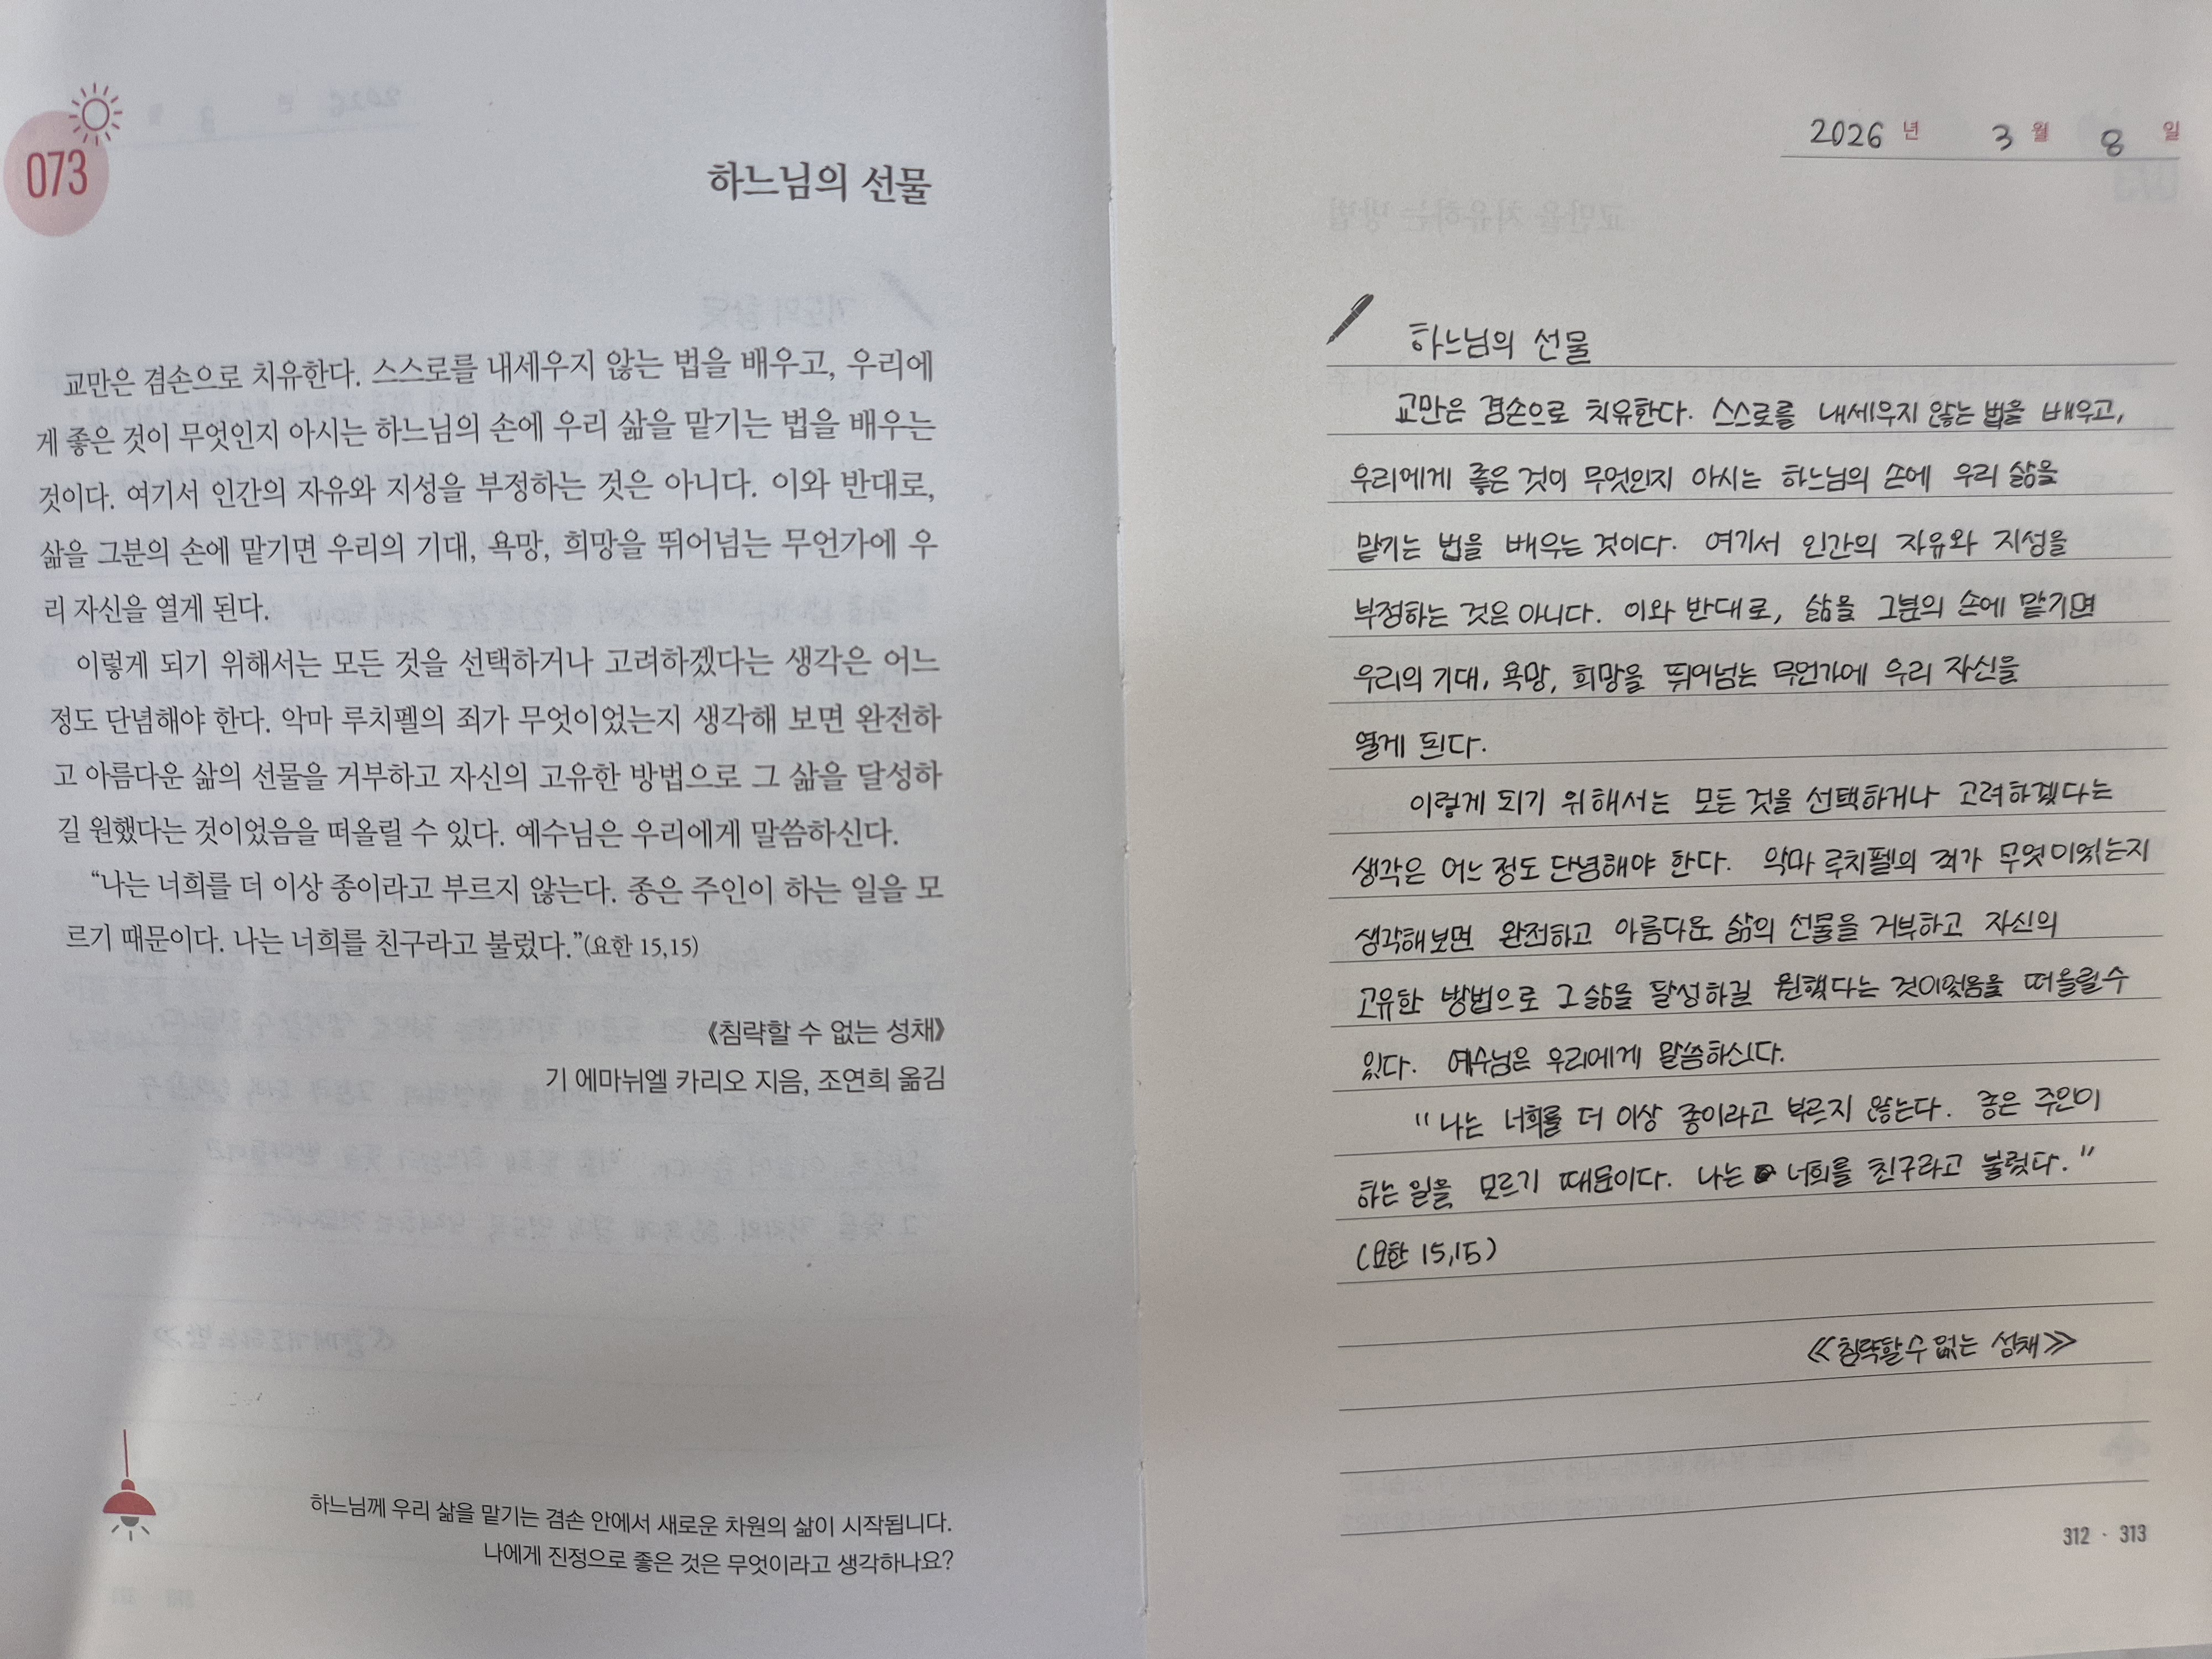 073
하느님의 선물
교만은 겸손으로 치유한다. 스스로를 내세우지 않는 법을 배우고, 우리에
게 좋은 것이 무엇인지 아시는 하느님의 손에 우리 삶을 맡기는 법을 배우는
것이다. 여기서 인간의 자유와 지성을 부정하는 것은 아니다. 이와 반대로,
삶을 그분의 손에 맡기면 우리의 기대, 욕망, 희망을 뛰어넘는 무언가에 우
리 자신을 열게 된다.
이렇게 되기 위해서는 모든 것을 선택하거나 고려하겠다는 생각은 어느
정도 단념해야 한다. 악마 루치펠의 죄가 무엇이었는지 생각해 보면 완전하
고 아름다운 삶의 선물을 거부하고 자신의 고유한 방법으로 그 삶을 달성하
길 원했다는 것이었음을 떠올릴 수 있다. 예수님은 우리에게 말씀하신다.
“나는 너희를 더 이상 종이라고 부르지 않는다. 종은 주인이 하는 일을 모
르기 때문이다. 나는 너희를 친구라고 불렀다.”(요한 15,15)
《침략할 수 없는 성채》
기 에마뉘엘 카리오 지음, 조연희 옮김
하느님께 우리 삶을 맡기는 겸손 안에서 새로운 차원의 삶이 시작됩니다.
나에게 진정으로 좋은 것은 무엇이라고 생각하나요?
2026 년 3 월 8 일
하느님의 선물
교만은 겸손으로 치유한다. 스스로를 내세우지 않는 법을 배우고,
우리에게 좋은 것이 무엇인지 아시는 하느님의 손에 우리 삶을
맡기는 법을 배우는 것이다. 여기서 인간의 자유와 지성을
부정하는 것은 아니다. 이와 반대로, 삶을 그분의 손에 맡기면
우리의 기대, 욕망, 희망을 뛰어넘는 무언가에 우리 자신을
열게 된다.
이렇게 되기 위해서는 모든 것을 선택하거나 고려하겠다는
생각은 어느 정도 단념해야 한다. 악마 루치펠의 죄가 무엇이었는지
생각해보면 완전하고 아름다운 삶의 선물을 거부하고 자신의
고유한 방법으로 그 삶을 달성하길 원했다는 것이었음을 떠올릴 수
있다. 예수님은 우리에게 말씀하신다.
"나는 너희를 더 이상 종이라고 부르지 않는다. 종은 주인이
하는 일을 모르기 때문이다. 나는 너희를 친구라고 불렀다."
(요한 15,15)
≪침략할 수 없는 성채≫
312 · 313